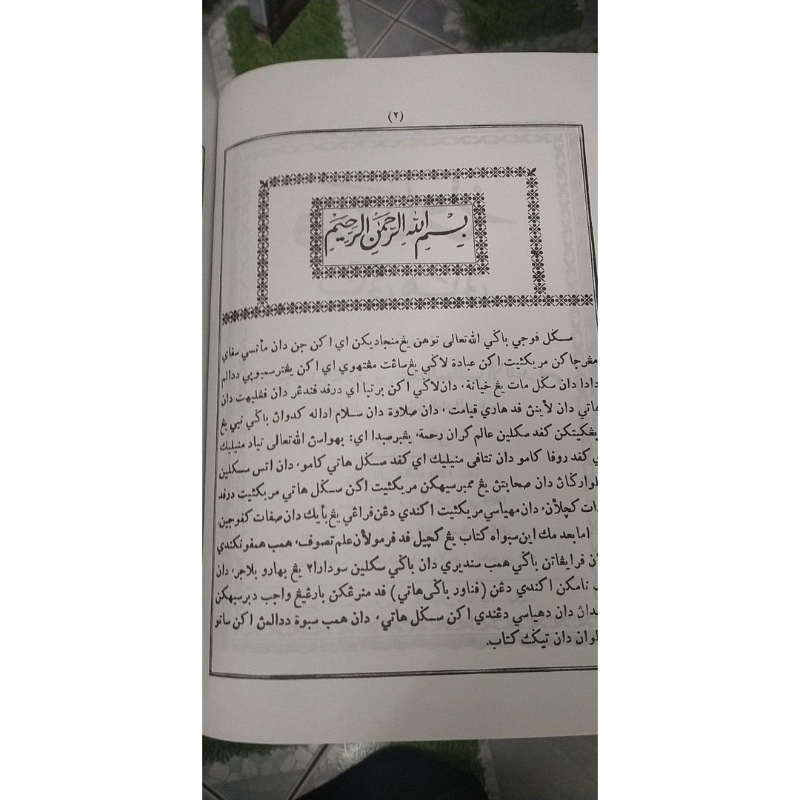 (٢)
بِسْمِ اللهِ الرَّحْمٰنِ الرَّحِيْمِ
سݢل فوجي باݢي الله تعالى توهن يڠ منجاديكن اي اكن جن دان مأنسي سفاي
مڠرجاكن مريكئيت اكن عبادة لاݢي يڠ ساڠت مڠتهوي اي اكن يڠترسمبوڽي ددالم
دادا دان سݢل مات يڠ خيانة، دان لاݢي اكن برتيا اي درفد فندڠر دان فڠليهت دان
هاتي دان لأينڽ فد هاري قيامت، دان صلاوة دان سلام اداله كدوان باݢي نبي يڠ
كفد سكلين عالم كران رحمة، يڠبرسبدا اي: بهواسڽ الله تعالى تياد منيليك
اي كفد روفا كامو دان تتافي منيليك اي كفد سݢل هاتي كامو، دان اتس سكلين
دان صحابتڽ يڠ ممبرسيهكن مريكئيت اكن سݢل هاتي مريكئيت درفد
كچلأن، دان مهياسي مريكئيت اكندي دڠن فراڠي يڠ بأيك دان صفات كفوجين.
امابعد مك اين سبواه كتاب يڠ كچيل فد فرمولأن علم تصوف، همب همفونكندي
باݢي همب سنديري دان باݢي سكلين سودارا٢ يڠ بهارو بلاجر، دان
نامكن اكندي دڠن (فناور باݢي هاتي) فد منرڠكن بارڠيڠ واجب دبرسيهكن
دان دهياسي دڠندي اكن سݢل هاتي، دان همب سبوة ددالمڽ اكن ساتو
دان تيݢ كتاب.